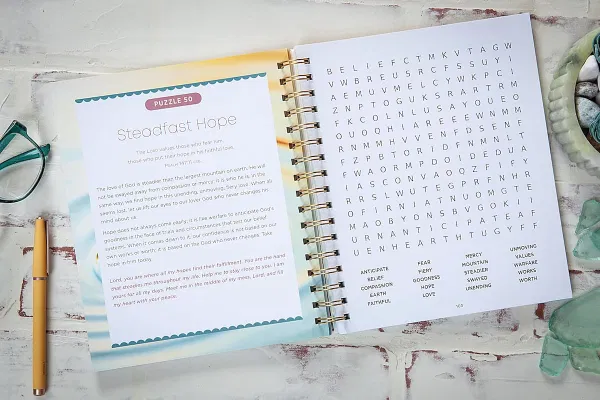 PUZZLE 50
Steadfast Hope
The Lord values those who fear him,
those who put their hope in his faithful love.
The love of God is steadier than the largest mountain on earth. He will
not be swayed away from compassion or mercy; it is who he is. In the
same way, we find hope in this unending, unmoving, fiery love. When all
seems lost, let us lift our eyes to our loving God who never changes his
mind about us.
Hope does not always come easily; it is like warfare to anticipate God's
goodness in the face of trials and circumstances that test our belief
systems. When it comes down to it, our confidence is not based on our
own works or worth; it is based on the God who never changes. Take
hope in him today.
Lord, you are where all my hopes find their fulfillment. You are the hand
that steadies me throughout my life. Help me to stay close to you. I am
yours for all my days. Meet me in the middle of my mess, Lord, and fill
my heart with your peace.
B E L I E F C T M K V T A G W
V W B R E U S R C F S S U Y I
A E M U V M E L C Y W K P C I
Z N P T O G U K S R A R T R M
F K C O L N L U S A Y O U E O
O U O Q H I A R E E E W N M M
R N M M H V V E N F D S E N F
F Z P B T O R I D F N M N L T
F W A O R M P D O I D E D U A
I A S C O N V A O Q Z F I F Y
R R S L W U T E G P R F N H R
O F I R N I A T N U O M G T E
M A O B Y O N S B V G O K I F
U R N A N T I C I P A T E A F
U E N H E A R T H T U G Y F F
ANTICIPATE FEAR MERCY UNMOVING
BELIEF FIERY MOUNTAIN VALUES
COMPASSION GOODNESS STEADIER WARFARE
EARTH HOPE SWAYED WORKS
FAITHFUL LOVE UNENDING WORTH